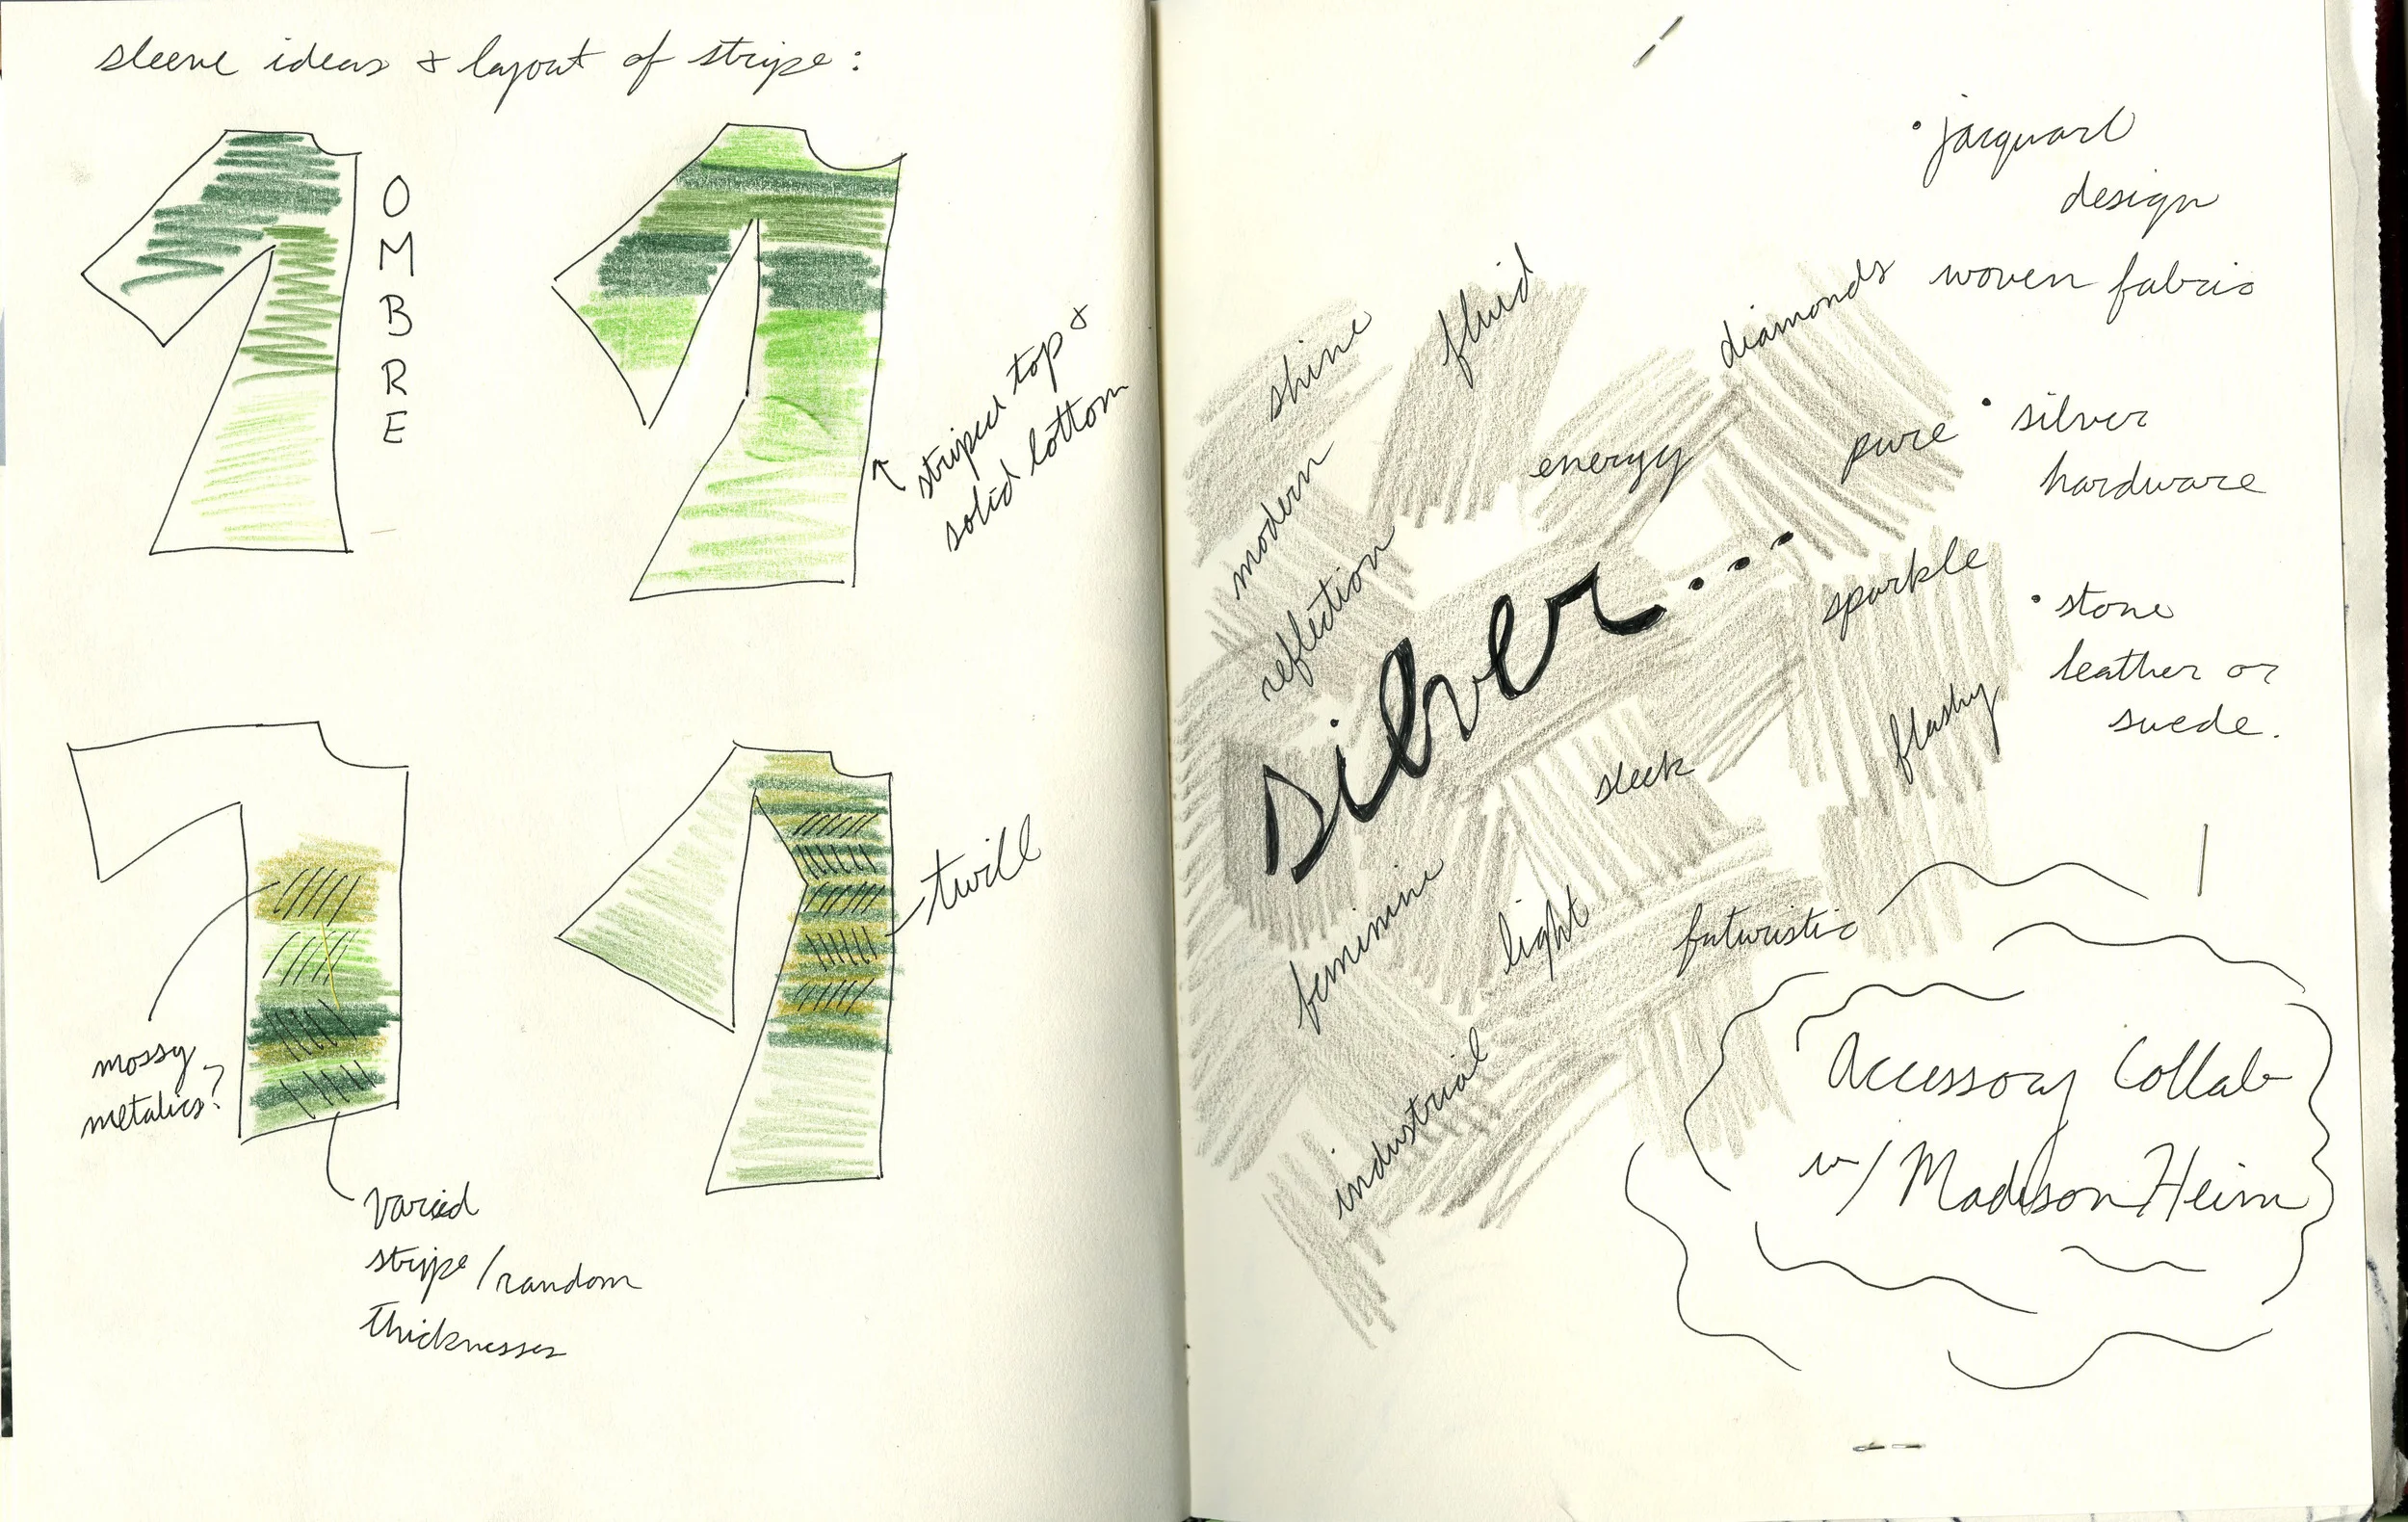 sleeve ideas & layout of stripe:
OMBRE
striped top &
solid bottom
mossy
metalics?
twill
varied
stripe/random
thicknesses
jacquard
design
woven fabric
silver
hardware
stone
leather or
suede.
shine
fluid
diamonds
energy
pure
modern
reflection
silver...
sparkle
flashy
sleek
feminine
light
futuristic
industrial
Accessory Collab
w/ Madison Heim